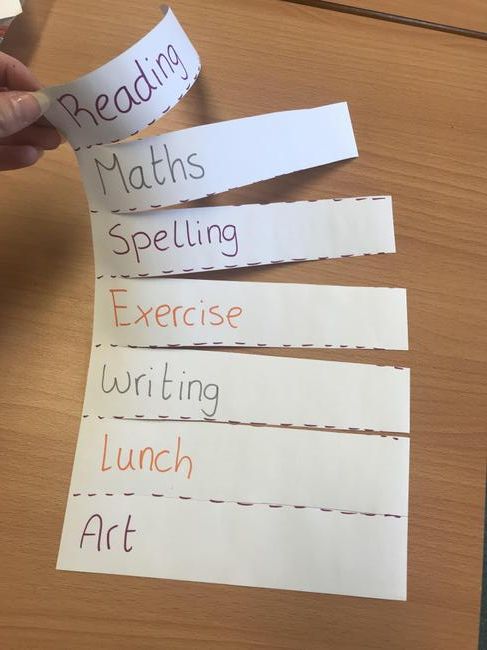 Reading
Maths
Spelling
Exercise
Writing
Lunch
Art